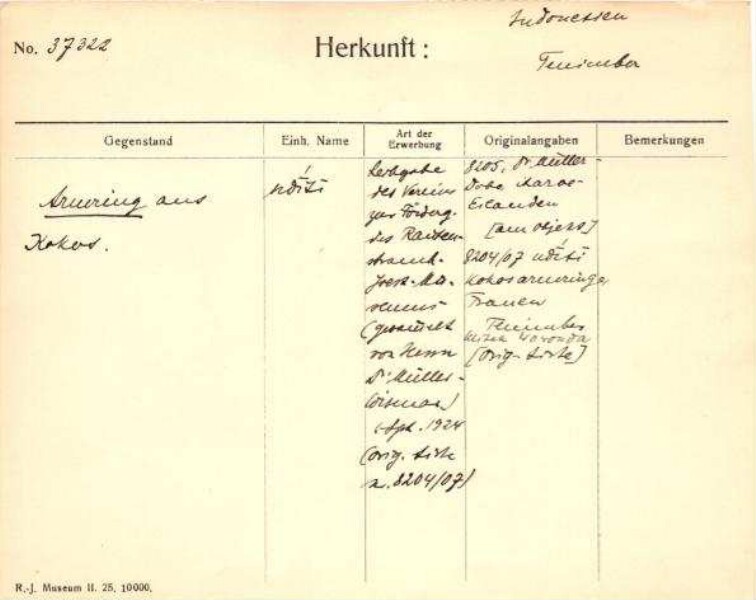 Indonesien
No. 37322
Herkunft:
Tenimber
Gegenstand
Einh. Name
Art der
Erwerbung
Originalangaben
Bemerkungen
Armring aus
Kokos.
ńditi
Leihgabe
des Vereins
zur Förderg.
des Rauten-
strauch-
Joest-Mu-
seums
(gesammelt
von Herrn
Dr. Müller-
Wismar)
Sept. 1924
(orig. Liste
n. 8204/07)
8205, Dr. Müller-
Dobo
Eilanden
[am Objekt]
8204/07 ńditi
Kokosarmringe
Frauen
Tenimber
[Orig. Liste]
R.-J. Museum II. 25. 10000.